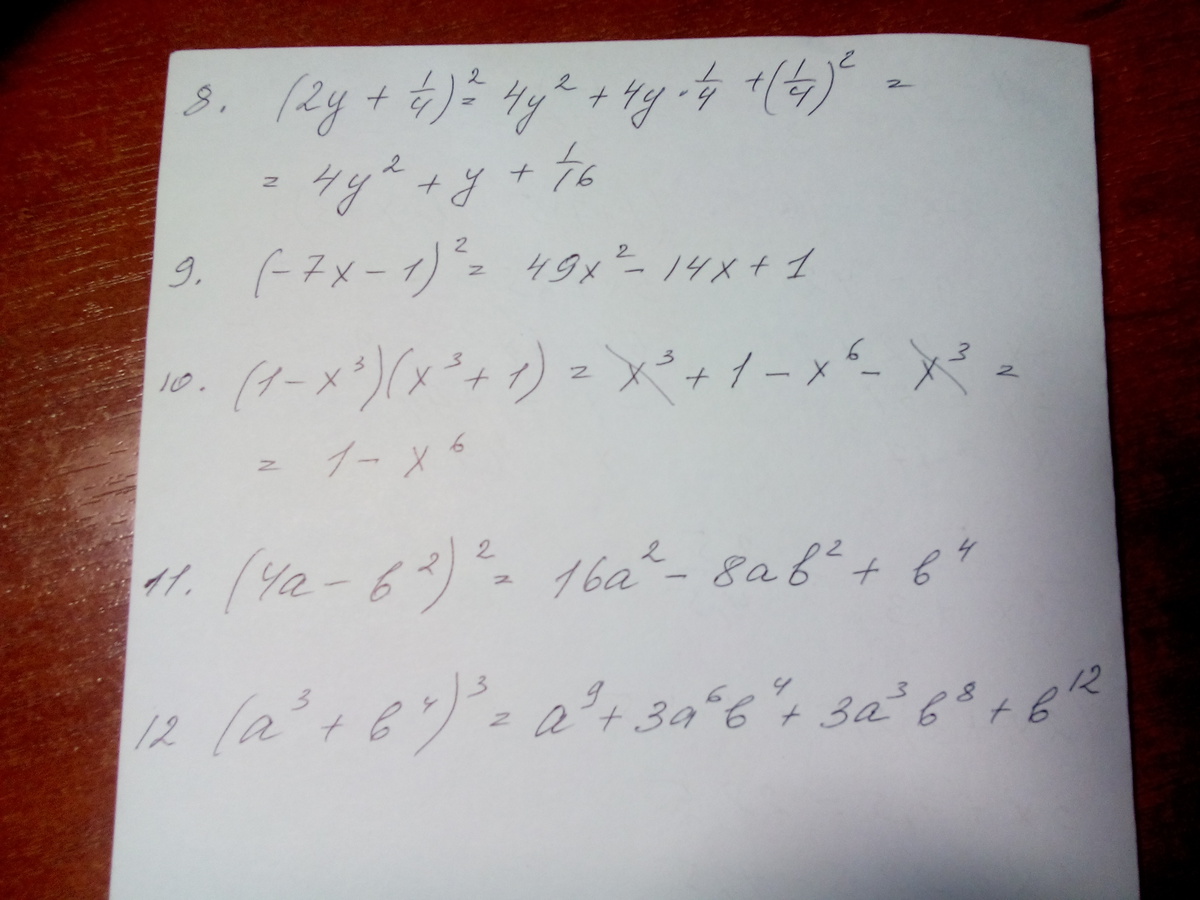 8. (2y + 1/4)² = 4y² + 4y · 1/4 + (1/4)² =
= 4y² + y + 1/16
9. (-7x - 1)² = 49x² - 14x + 1
10. (1 - x³)(x³ + 1) = x³ + 1 - x⁶ - x³ =
= 1 - x⁶
11. (4a - b²)² = 16a² - 8ab² + b⁴
12 (a³ + b⁴)³ = a⁹ + 3a⁶b⁴ + 3a³b⁸ + b¹²